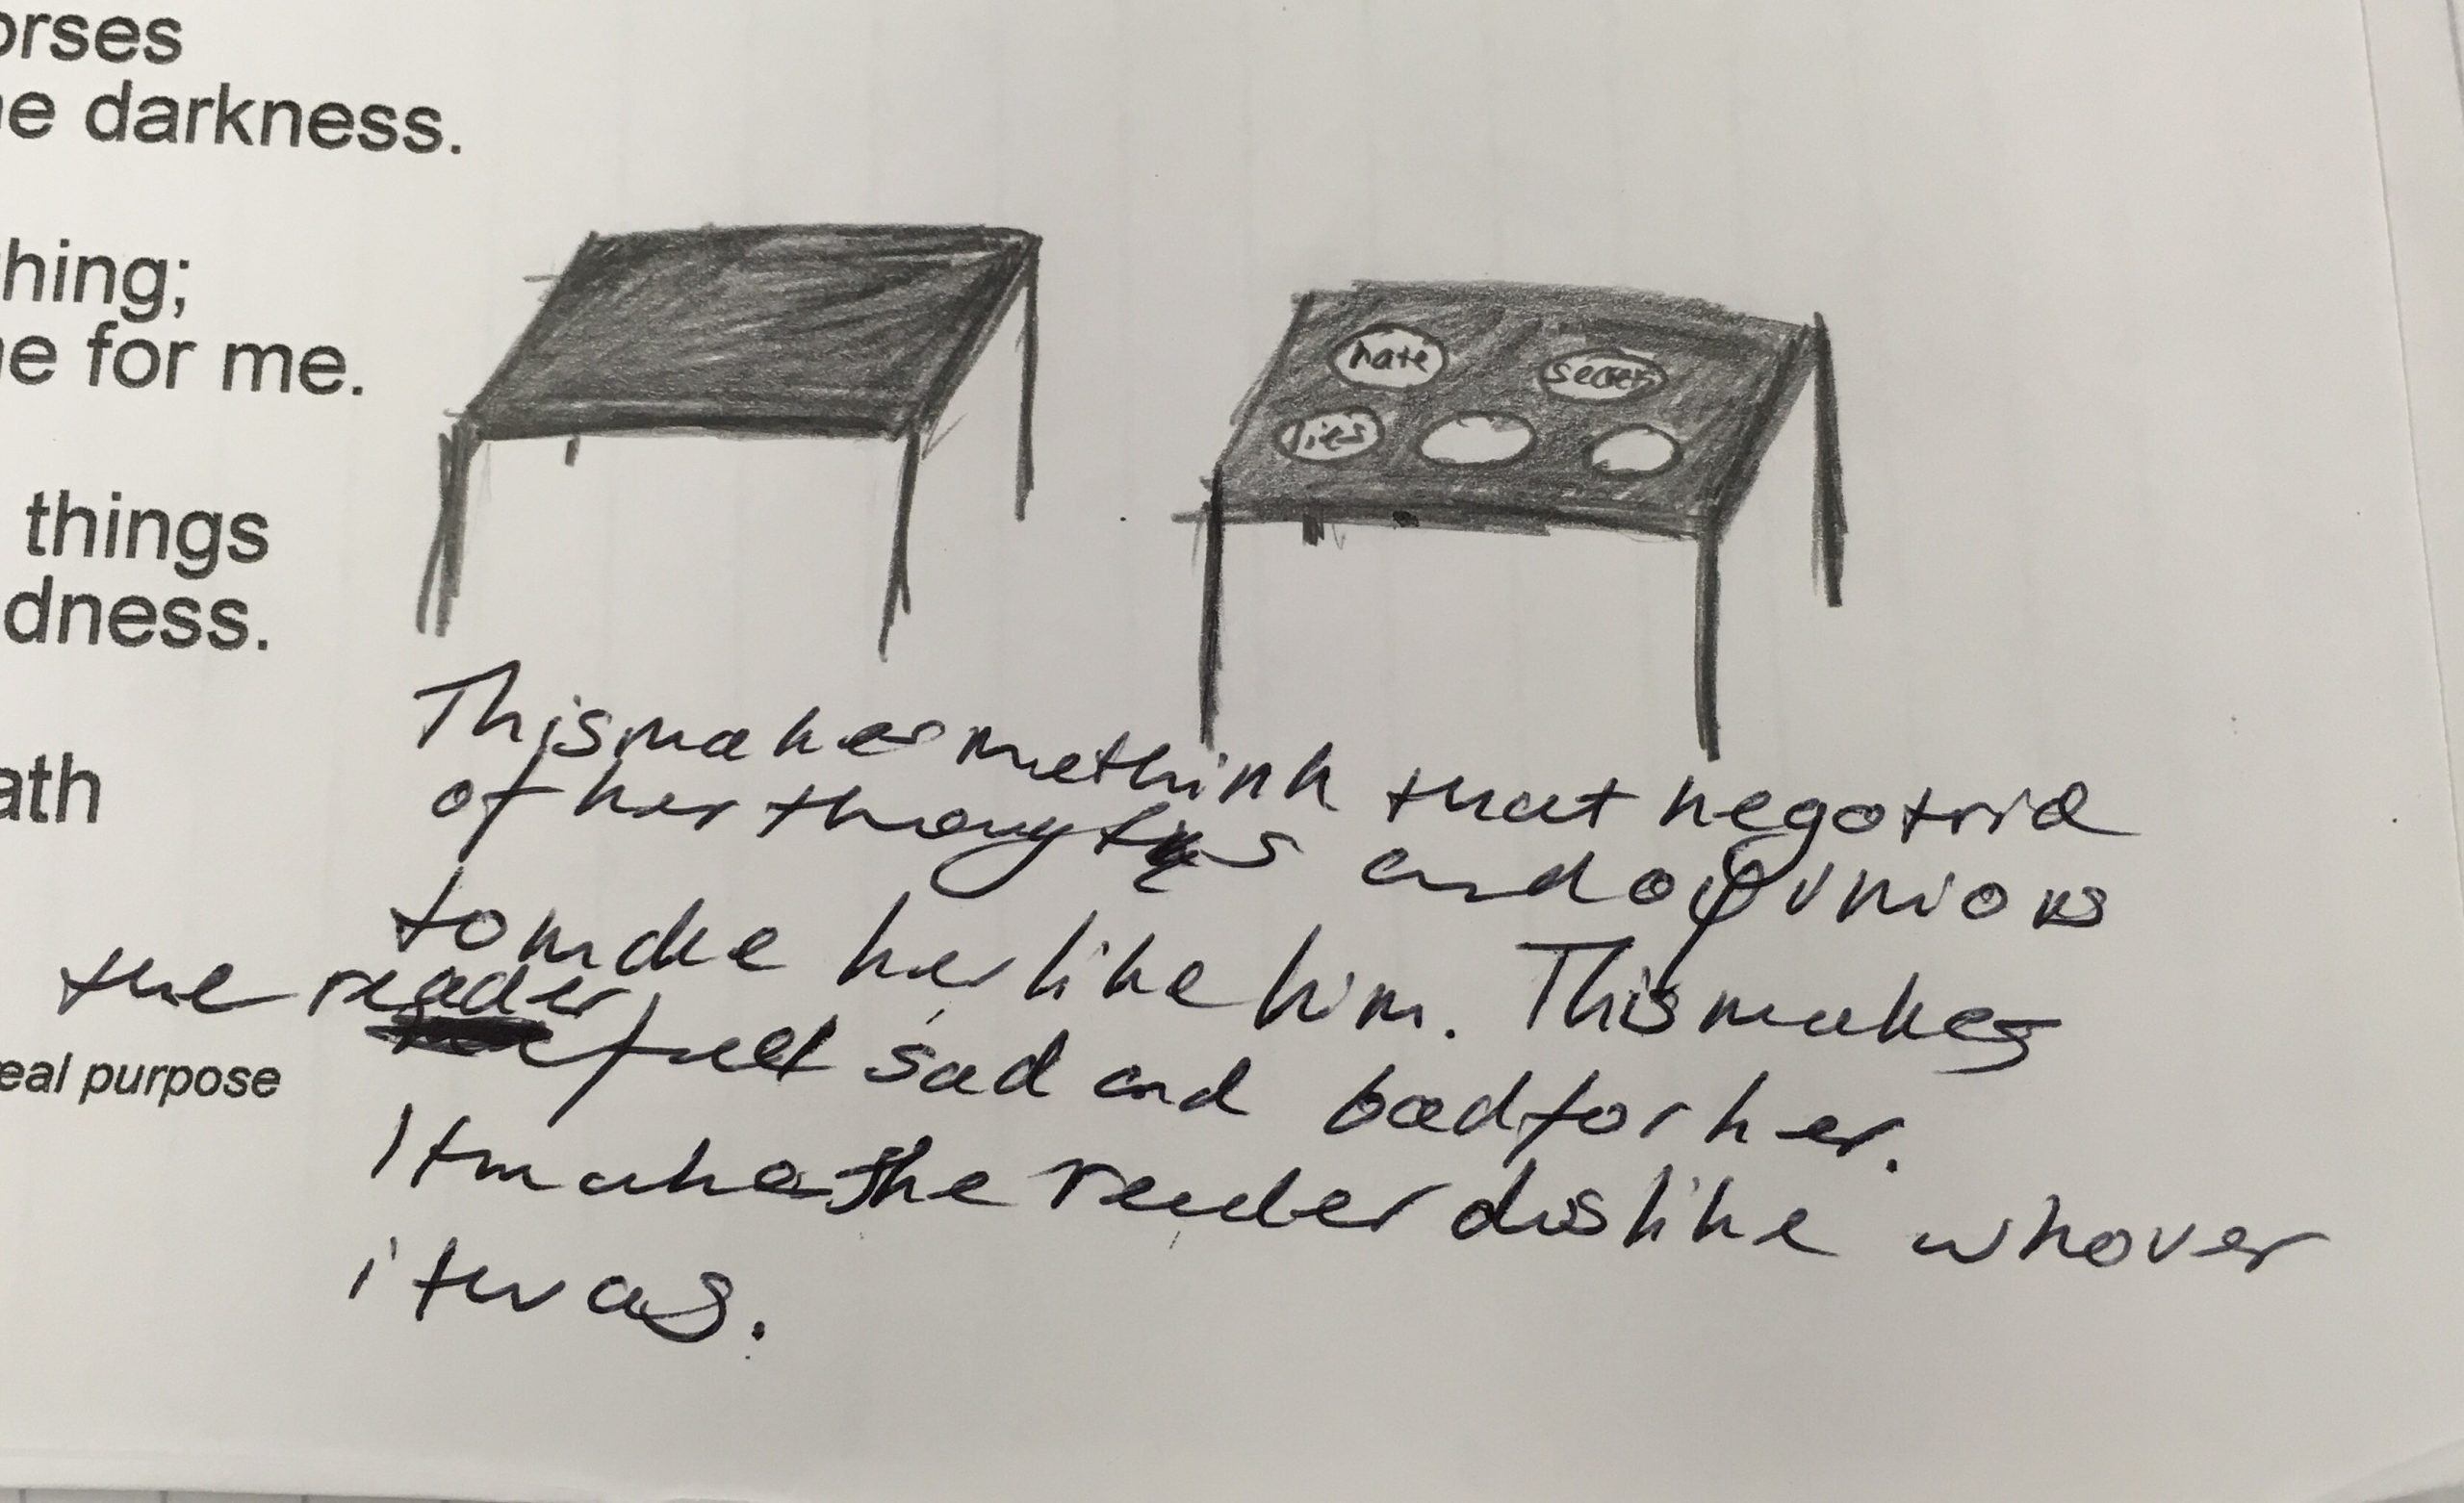 orses
e darkness.
hing;
e for me.
things
dness.
ath
eal purpose
hate
secrets
lies
This makes me think that he got rid
of her thoughts and opinions
to make her like him. This makes
the reader feel sad and bad for her.
It makes the reader dislike whover
it was.